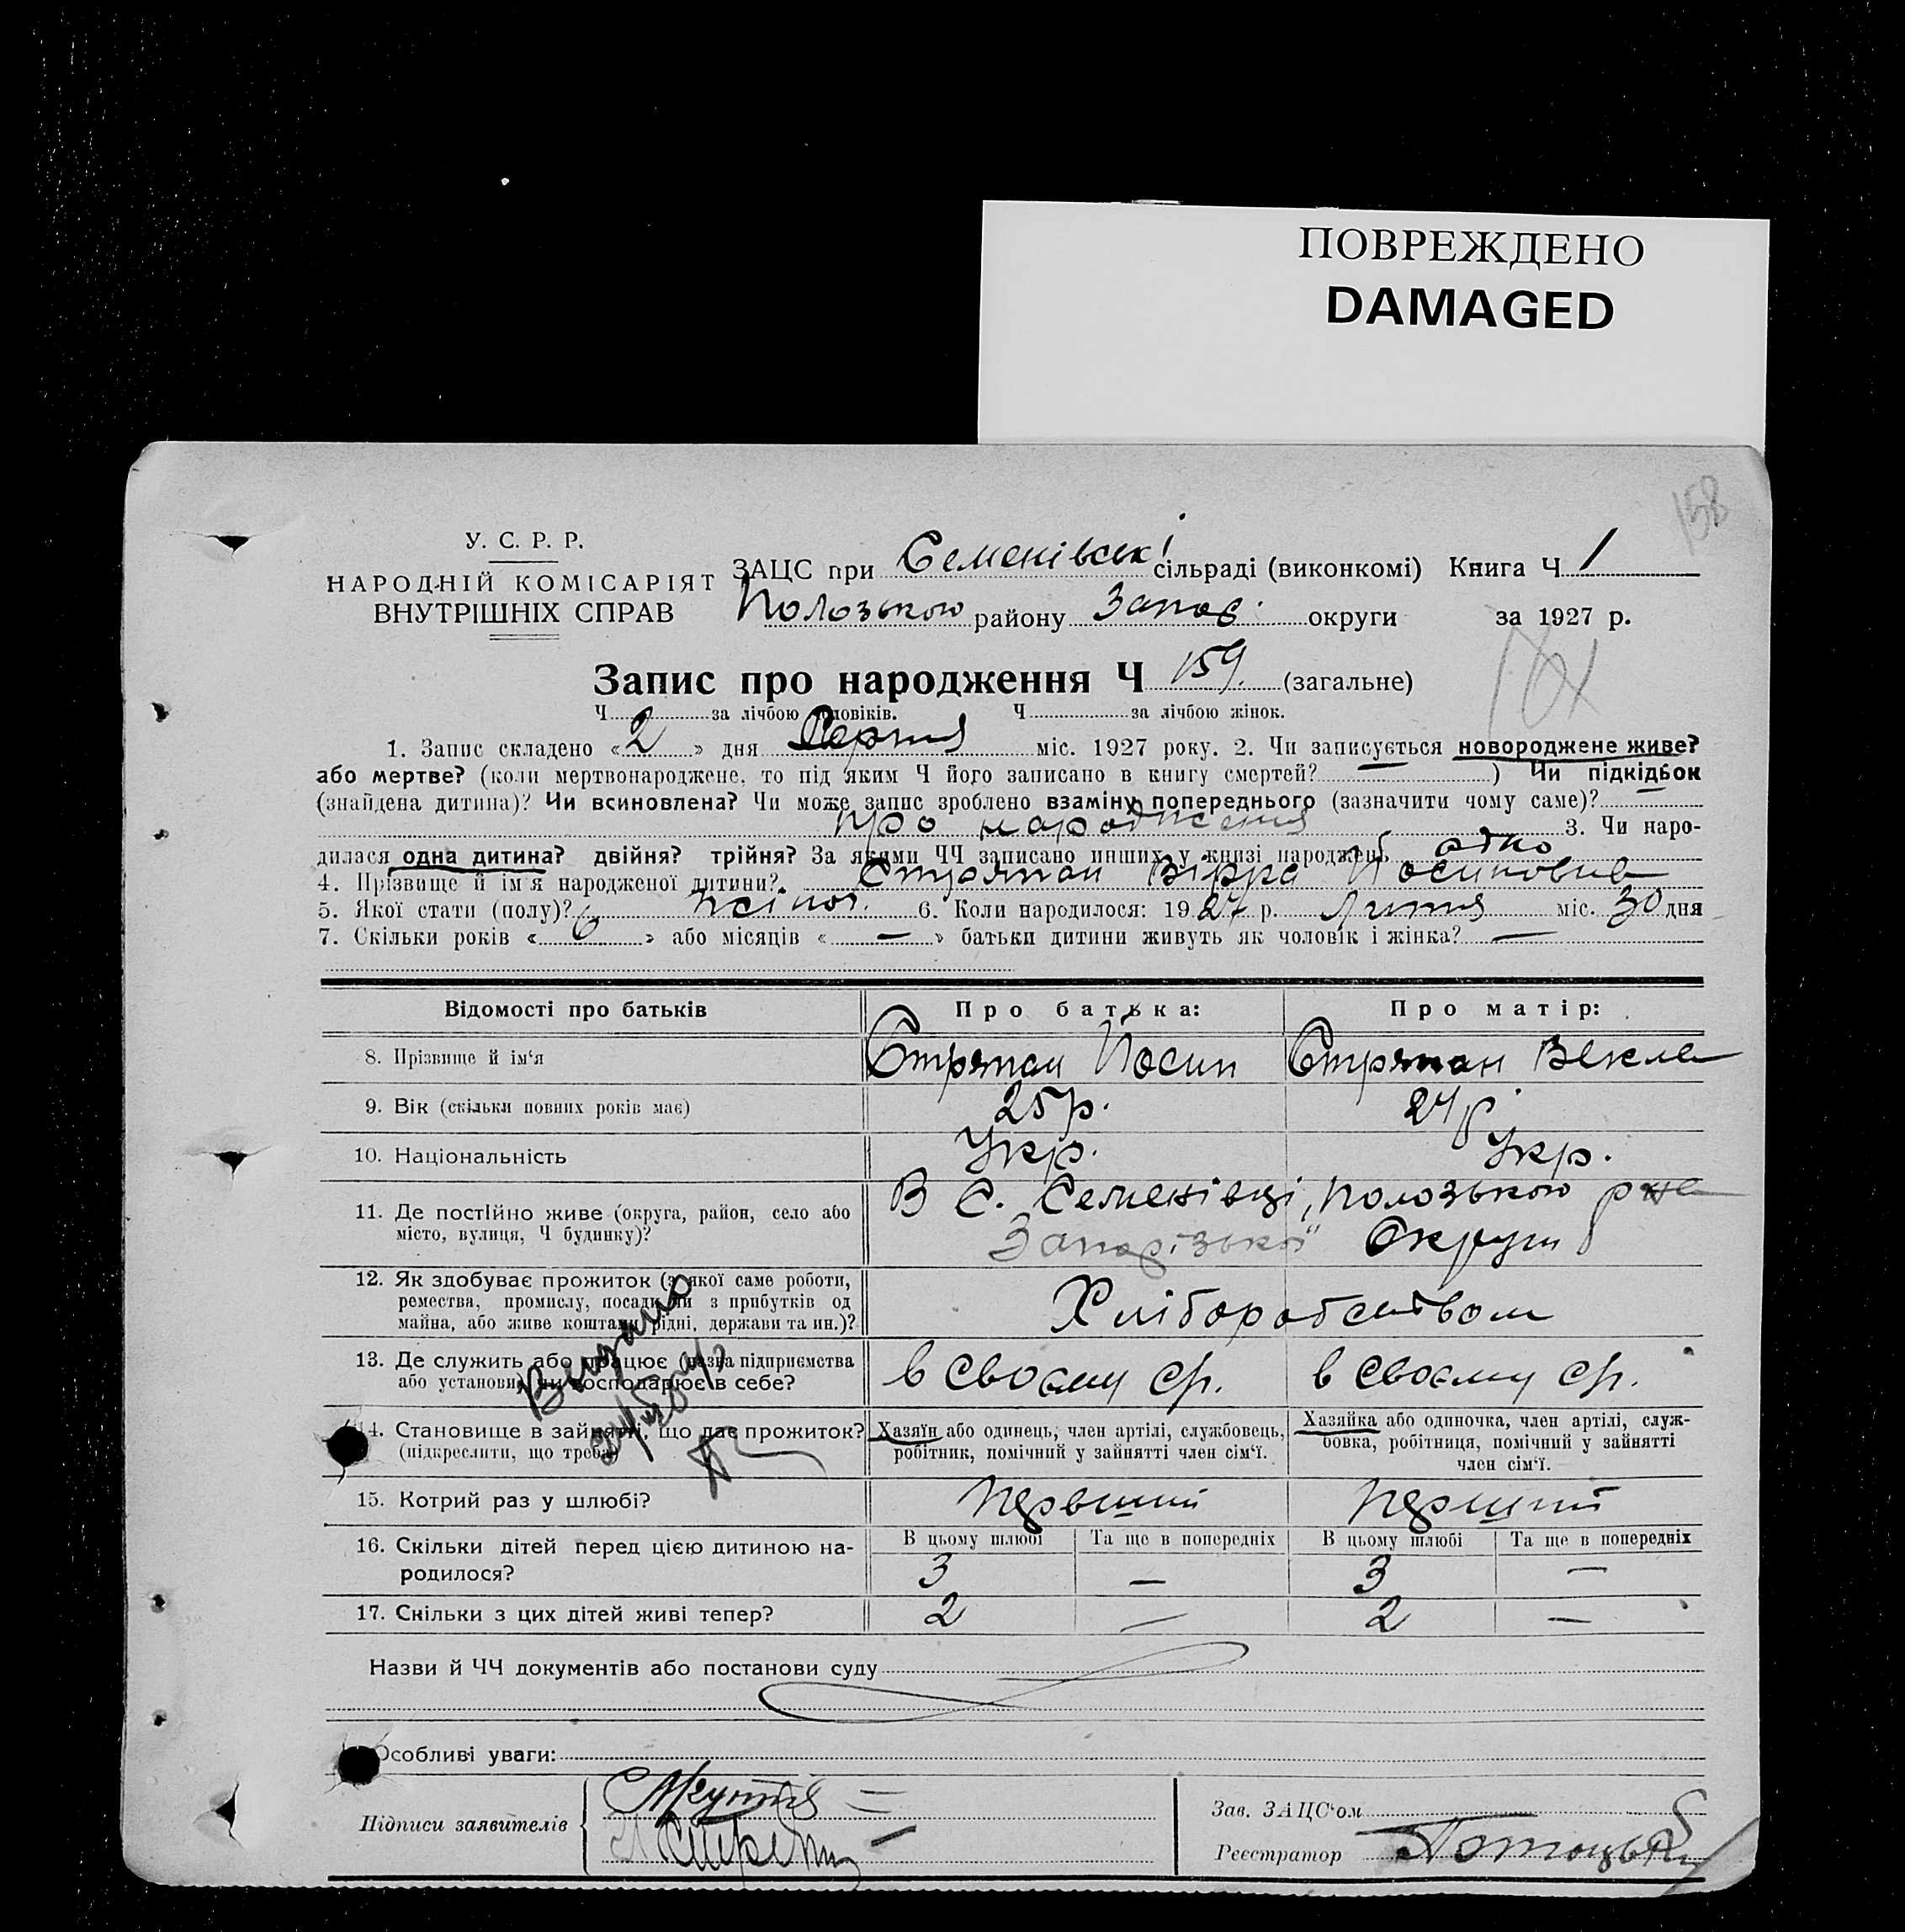 ПОВРЕЖДЕНО
DAMAGED
158
У. С. Р. Р.
НАРОДНІЙ КОМІСАРІЯТ
ВНУТРІШНІХ СПРАВ
ЗАЦС при Семенівські сільраді (виконкомі) Книга Ч 1
Полозького району Запоє. округи за 1927 р.
Запис про народження Ч 159. (загальне)
Ч за лічбою чоловіків. Ч за лічбою жінок.
1. Запис складено «2» дня Серпня міс. 1927 року. 2. Чи записується новороджене живе?
або мертве? (коли мертвонароджене, то під яким Ч його записано в книгу смертей? —) Чи підкідьок
(знайдена дитина)? Чи всиновлена? Чи може запис зроблено взаміну попереднього (зазначити чому саме)? —
про народження 3. Чи наро-
дилася одна дитина? двійня? трійня? За якими ЧЧ записано инших у книзі народжень одно
4. Прізвище й ім'я народженої дитини? Стряпан Вірра Йосиповна
5. Якої стати (полу)? жіноч. 6. Коли народилося: 1927 р. Липня міс. 30 дня
7. Скільки років «6» або місяців «—» батьки дитини живуть як чоловік і жінка? —
Відомості про батьків Про батька: Про матір:
8. Прізвище й ім'я Стряпан Йосип Стряпан Векла
9. Вік (скільки повних років має) 25 р. 24 р.
10. Національність Укр. Укр.
11. Де постійно живе (округа, район, село або
місто, вулиця, Ч будинку)?
В С. Семенівці, Полозького р-на
Запорізької Округи
12. Як здобуває прожиток (з якої саме роботи,
ремества, промислу, посади, чи з прибутків од
майна, або живе коштами рідні, держави та ин.)?
Хліборобством
13. Де служить або працює (назва підприємства
або установи) чи господарює в себе?
в своєму ср. в своєму ср.
Видано
14. Становище в зайнятті, що дає прожиток?
(підкреслити, що треба)
Хазяїн або одинець, член артілі, службовець,
робітник, помічний у зайнятті член сім'ї.
Хазяйка або одиночка, член артілі, служ-
бовка, робітниця, помічний у зайнятті
член сім'ї.
15. Котрий раз у шлюбі? Первший Перший
16. Скільки дітей перед цією дитиною на-
родилося?
В цьому шлюбі Та ще в попередніх В цьому шлюбі Та ще в попередніх
3 — 3 —
17. Скільки з цих дітей живі тепер? 2 — 2 —
Назви й ЧЧ документів або постанови суду
Особливі уваги:
Підписи заявителів
Зав. ЗАЦС'ом
Реєстратор Потоцький